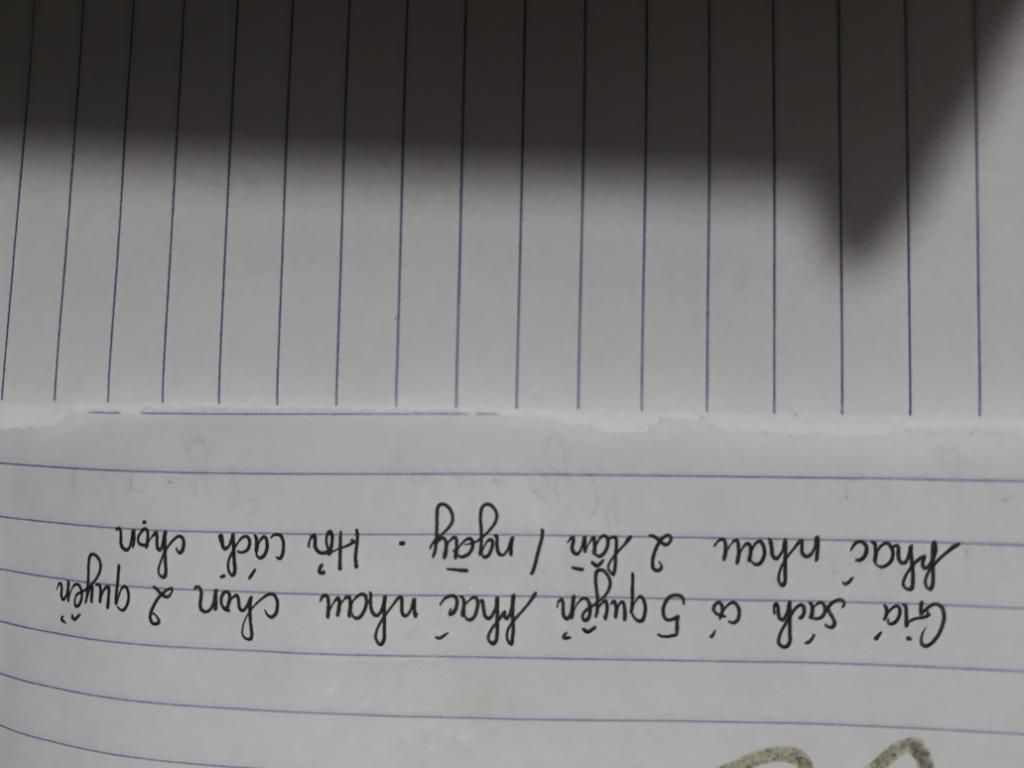 Giá sách có 5 quyển khác nhau chọn 2 quyển
khác nhau 2 lần / ngày. Hỏi cách chọn